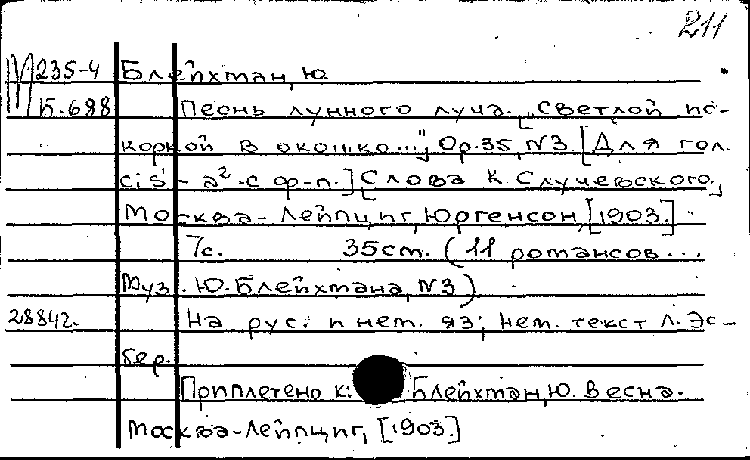 211
М 235-4 Блейхман, Ю.
К-688 Песнь лунного луча. „Светлой по-
коркой в окошко...", Ор.35, №3. [Для гол.
cis'-a².с ф-п.] [Слова К. Случевского.]
Москва-Лейпциг, Юргенсон, [1903.]
7с. 35см. (11 романсов...
муз. Ю. Блейхмана, №3)
28842. На рус. и нем. яз; нем. текст Л. Эс-
бер.
Приплетено к: Блейхман, Ю. Весна.
Москва-Лейпциг, [1903.]